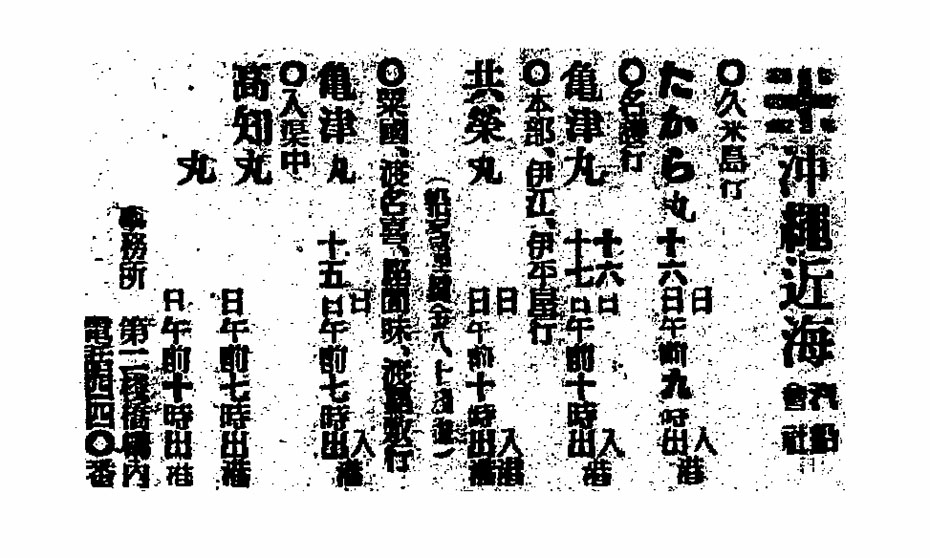 沖縄近海
汽船
會社
〇久米島行
たから丸
日入港
十六日午前九時出
〇名護行
亀津丸
十六日入港
十七日午前十時出
〇本部、伊江、伊平屋行
共榮丸
日入港
日午前十時出港
〇粟國、渡名喜、座間味、渡嘉敷行
亀津丸
日入港
十五日午前七時出
〇入渠中
高知丸
日午前七時出港
丸
日午前十時出港
事務所
第二桟橋構内
電話四四〇番